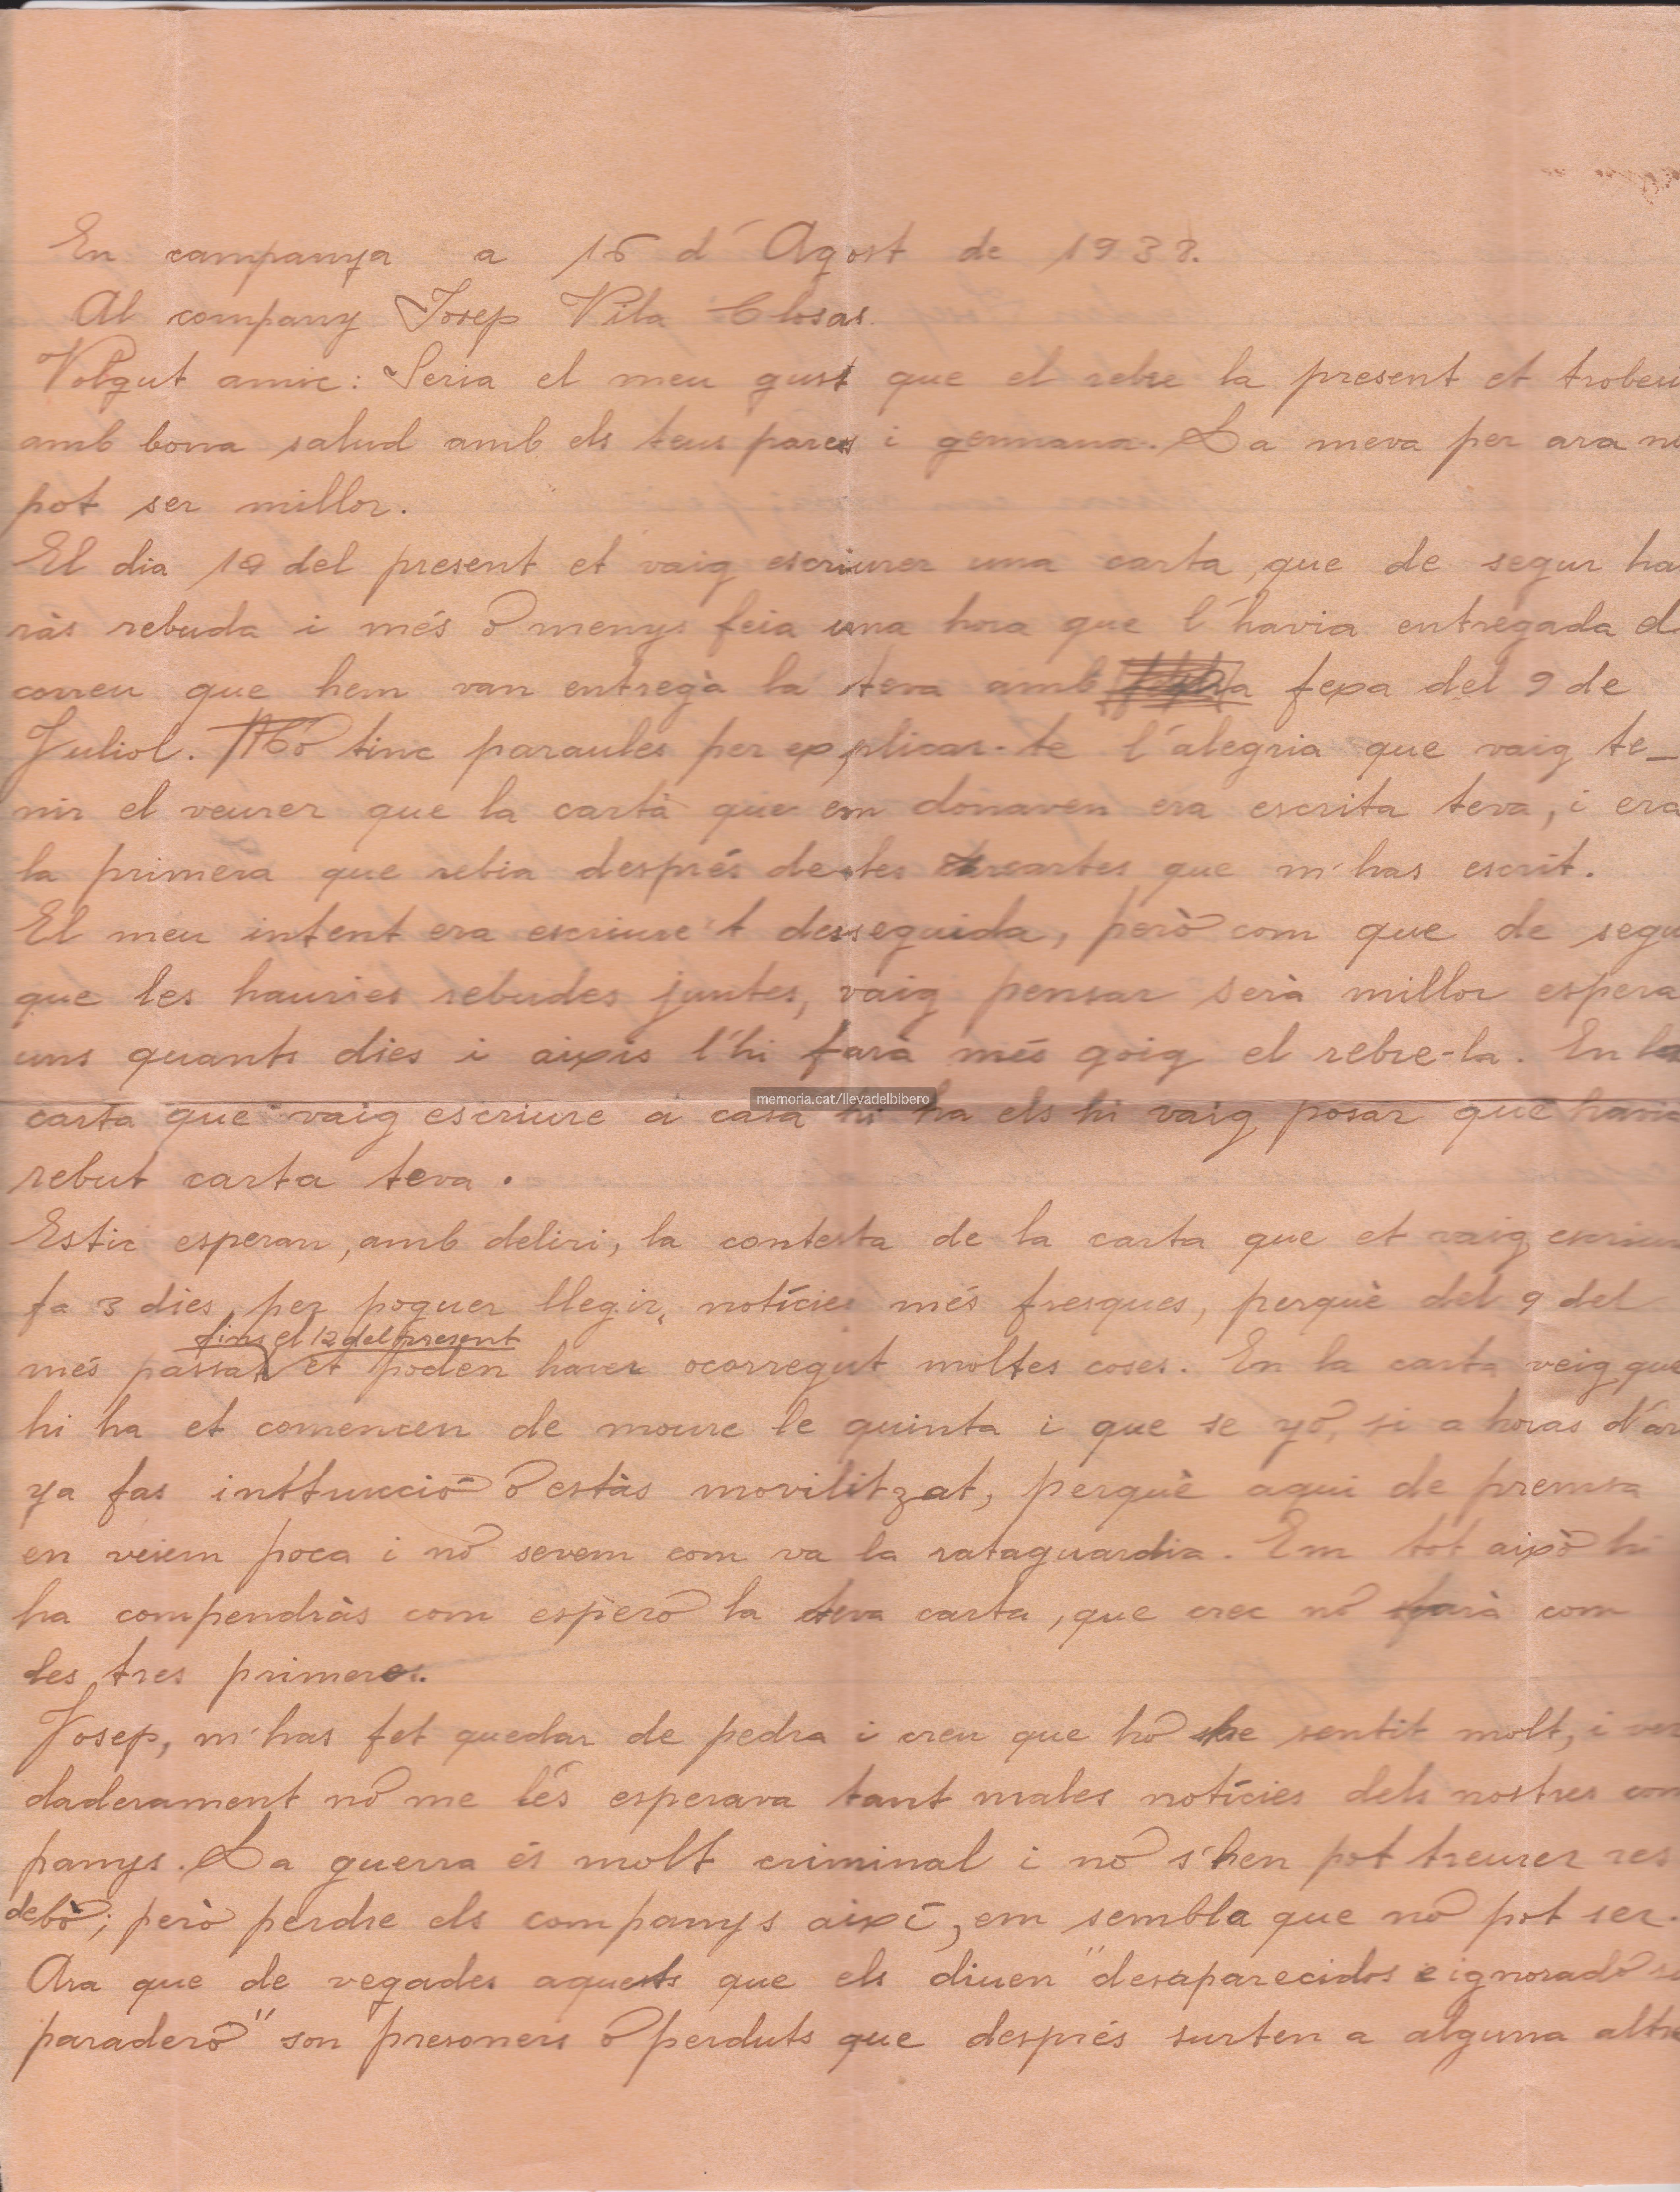 En campanya a 16 d'Agost de 1938.
Al company Josep Vila Closas.
Volgut amic: Seria el meu gust que el rebre la present et trobeu
amb bona salud amb els teus pares i germana. La meva per ara no
pot ser millor.
El dia del present et vaig escriurer una carta, que de segur hau
ràs rebuda i més o menys feia una hora que l'havia entregada el
correu que hem van entregà la teva amb fexa del 9 de
Juliol. No tinc paraules per explicar-te l'alegria que vaig te-
nir el veurer que la carta que em donaven era escrita teva, i era
la primera que rebia després de les cartes que m'has escrit.
El meu intent era escriure't desseguida, però com que de segu
que les hauries rebudes juntes, vaig pensar serà millor espera
uns quants dies i aixis l'hi farà més goig el rebre-la. En la
memoria.cat/llevadelbibero
carta que vaig escriure a casa hi ha els hi vaig posar que havia
rebut carta teva.
Estic esperan, amb deliri, la contesta de la carta que et vaig escriure
fa 3 dies, per poguer llegir, notícies més fresques, perquè del 9 del
fins el 12 del present
més passat et poden haver ocorregut moltes coses. En la carta veig que
hi ha et comencen de moure le quinta i que se yo, si a horas d'ar
ya fas instrucció o estàs movilitzat, perquè aqui de premsa
en veiem poca i no sevem com va la rataguardia. Em tot aixó hi
ha compendràs com espero la teva carta, que crec no farà com
les tres primeres.
Josep, m'has fet quedar de pedra i creu que ho he sentit molt, i ver
daderament no me les esperava tant males notícies dels nostres com
panys. La guerra és molt criminal i no s'hen pot treurer res
de bo; però perdre els companys així, em sembla que no pot ser.
Ara que de vegades aquests que els diuen "desaparecidos e ignorado su
paradero" son presoners o perduts que després surten a alguna altre